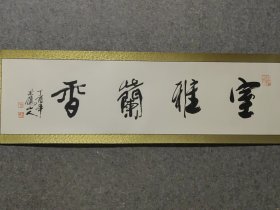 室雅蘭香
丁酉年